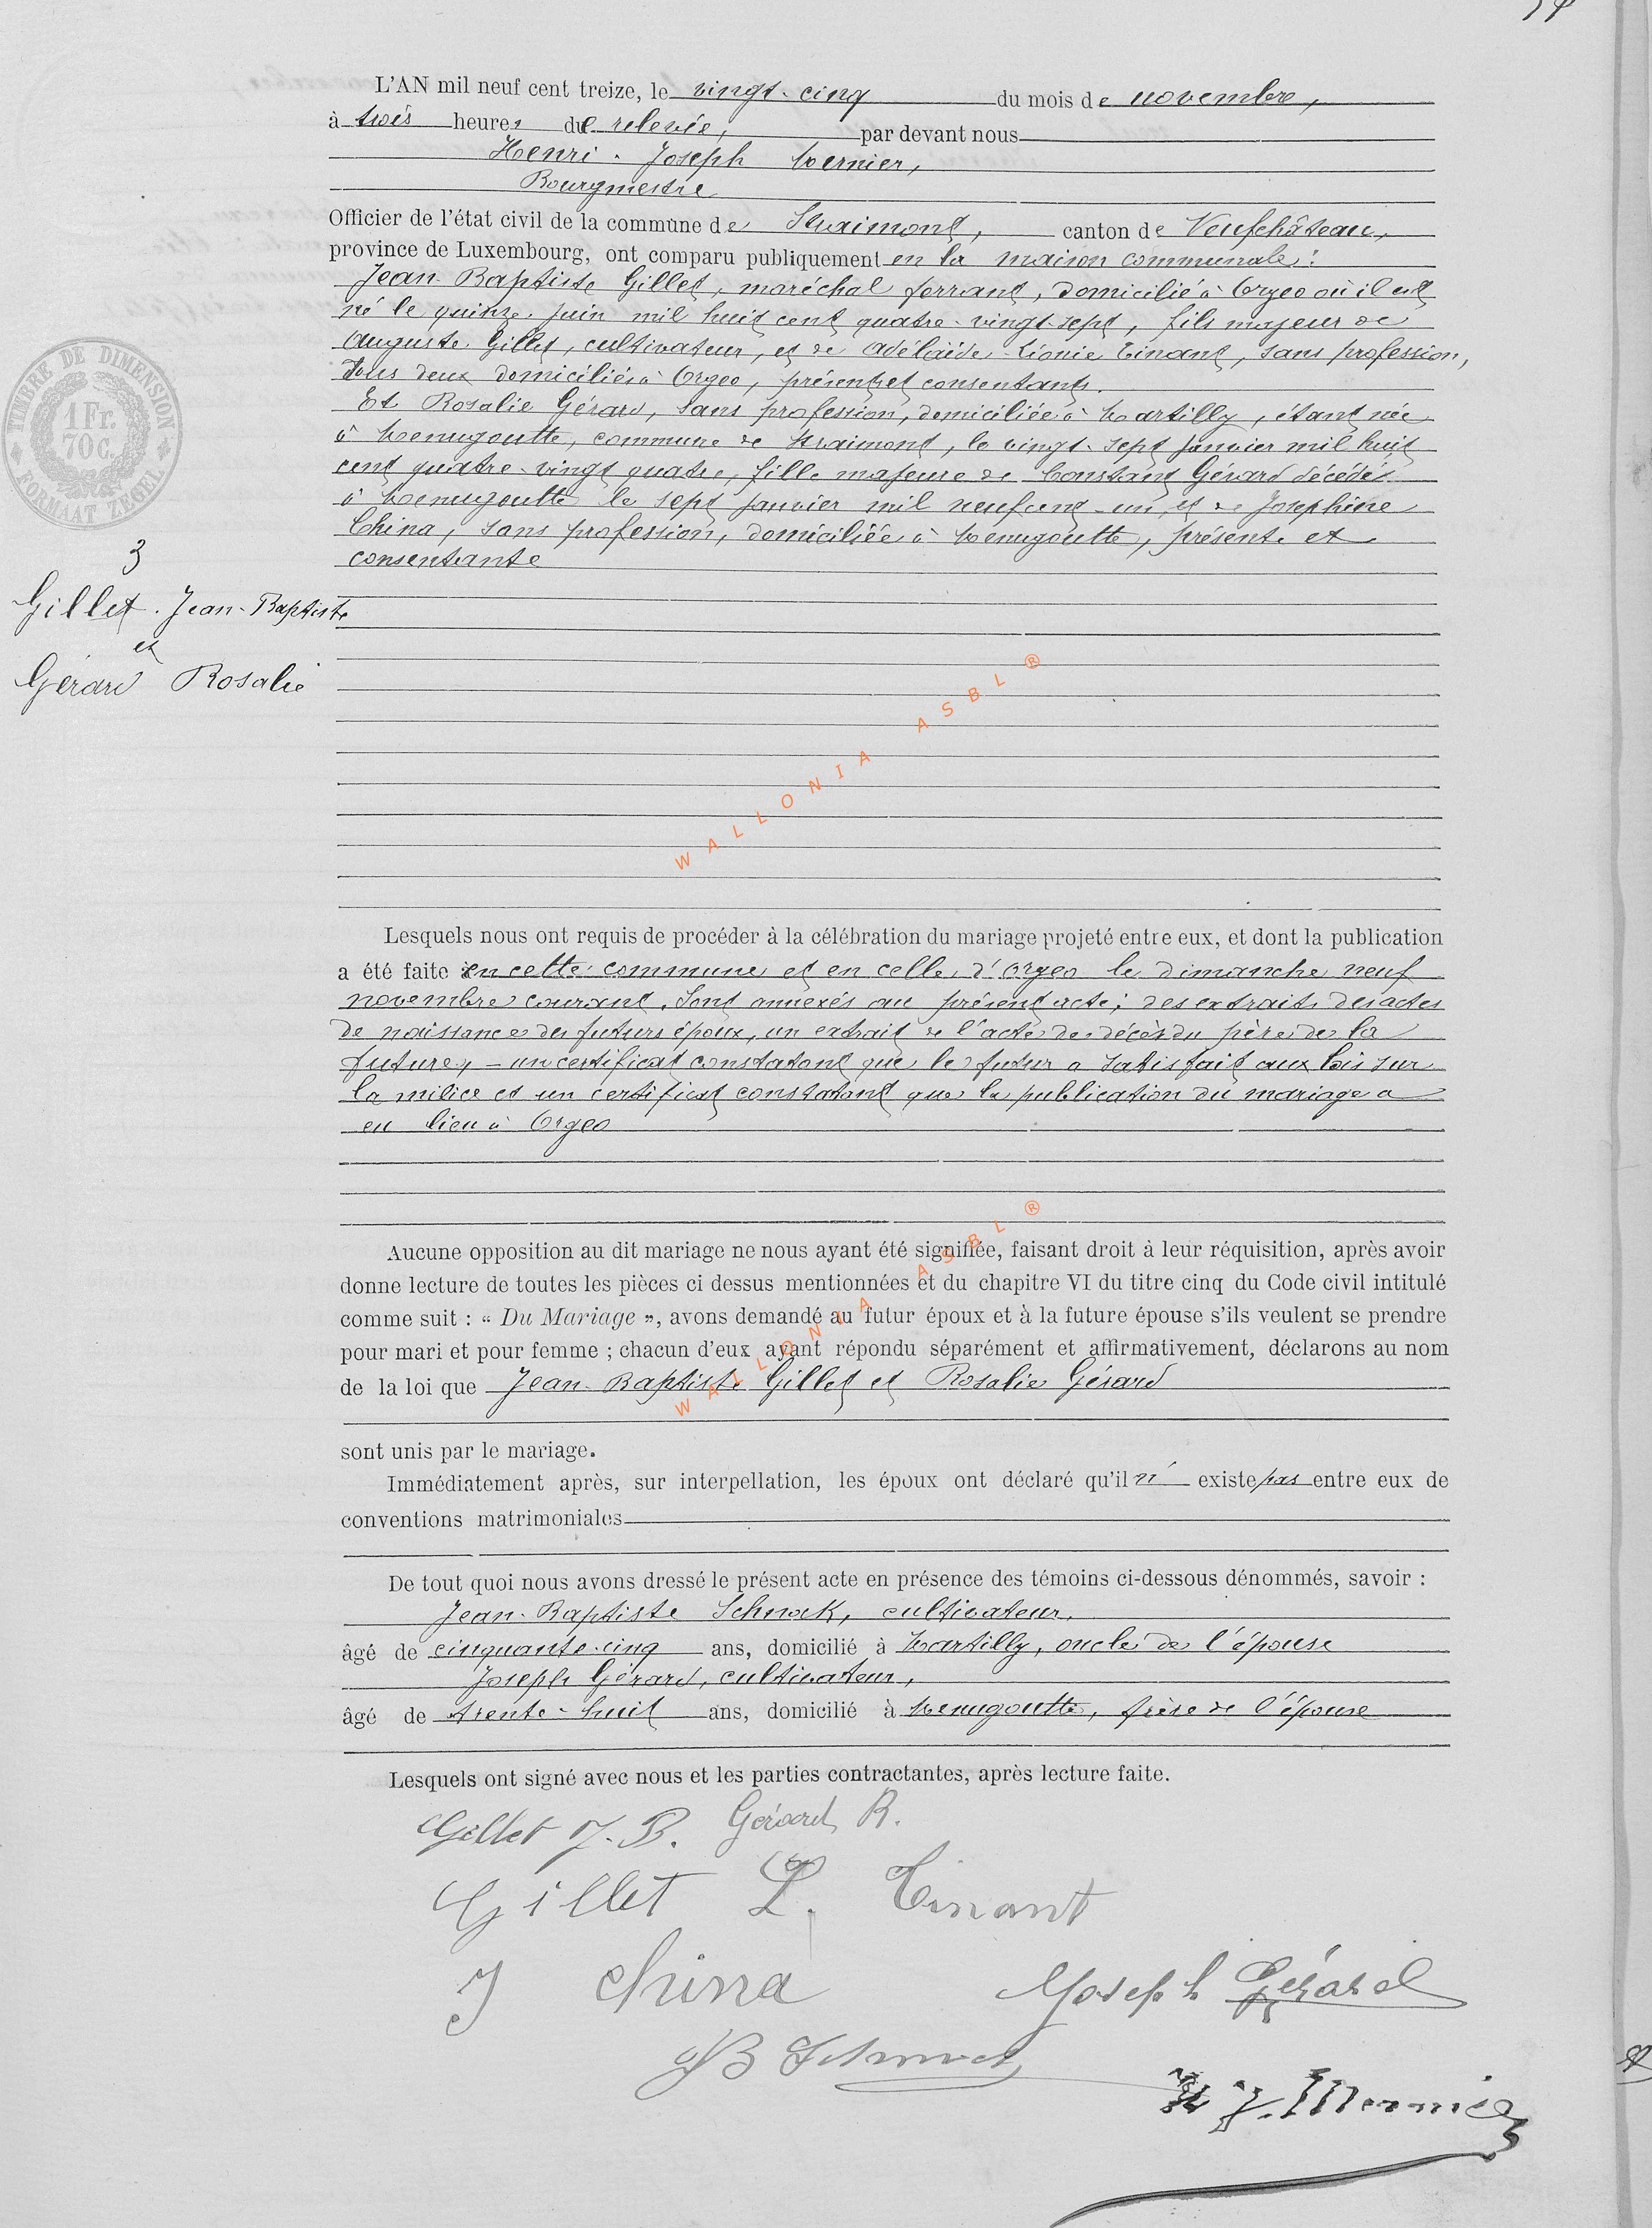 L'AN mil neuf cent treize, le vingt-cinq du mois de novembre,
à trois heures de relevée, par devant nous
Henri-Joseph Wernier,
Bourgmestre
Officier de l'état civil de la commune de Straimont, canton de Neufchâteau,
province de Luxembourg, ont comparu publiquement en la maison communale:
Jean-Baptiste Gillet, maréchal ferrant, domicilié à Orgeo où il est
né le quinze juin mil huit cent quatre-vingt-sept, fils majeur de
Auguste Gillet, cultivateur, et de Adélaïde-Léonie Tinant, sans profession,
tous deux domiciliés à Orgeo, présents et consentants.
Et Rosalie Gérard, sans profession, domiciliée à Martilly, étant née
à Menugoutte, commune de Straimont, le vingt-sept janvier mil huit
cent quatre-vingt quatre, fille majeure de Constant Gérard décédé
à Menugoutte le sept janvier mil neuf cent-un, et de Joséphine
China, sans profession, domiciliée à Menugoutte, présente et
consentante
3
Gillet. Jean-Baptiste
et
Gérard Rosalie
TIMBRE DE DIMENSION
1 Fr.
70 C.
FORMAAT ZEGEL
WALLONIA ASBL ®
Lesquels nous ont requis de procéder à la célébration du mariage projeté entre eux, et dont la publication
a été faite en cette commune et en celle d'Orgeo le dimanche neuf
novembre courant. Sont annexés au présent acte: des extraits des actes
de naissance des futurs époux, un extrait de l'acte de décès du père de la
future, - un certificat constatant que le futur a satisfait aux lois sur
la milice et un certificat constatant que la publication du mariage a
eu lieu à Orgeo
WALLONIA ASBL ®
Aucune opposition au dit mariage ne nous ayant été signifiée, faisant droit à leur réquisition, après avoir
donne lecture de toutes les pièces ci dessus mentionnées et du chapitre VI du titre cinq du Code civil intitulé
comme suit : « Du Mariage », avons demandé au futur époux et à la future épouse s'ils veulent se prendre
pour mari et pour femme ; chacun d'eux ayant répondu séparément et affirmativement, déclarons au nom
de la loi que Jean-Baptiste Gillet et Rosalie Gérard
sont unis par le mariage.
Immédiatement après, sur interpellation, les époux ont déclaré qu'il n' existe pas entre eux de
conventions matrimoniales
De tout quoi nous avons dressé le présent acte en présence des témoins ci-dessous dénommés, savoir :
Jean-Baptiste Schnock, cultivateur,
âgé de cinquante-cinq ans, domicilié à Martilly, oncle de l'épouse
Joseph Gérard, cultivateur,
âgé de trente-huit ans, domicilié à Menugoutte, frère de l'épouse
Lesquels ont signé avec nous et les parties contractantes, après lecture faite.
Gillet J. B. Gérard R.
Gillet L. Tinant
J China Joseph Gérard
JB
H J. Wernier